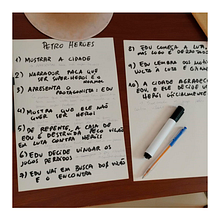 PETRO HEROES
1) MOSTRAR A CIDADE
2) NARRADOR FALA QUE
SER SUPER-HERÓI É O NORMAL
3) APRESENTA O
PROTAGONISTA: EDU
4) MOSTRA QUE ELE NÃO
QUER SER HERÓI
5) DE REPENTE, A CASA DE
EDU É DESTRUÍDA PELO VILÃO
EM LUTA CONTRA HERÓIS
6) EDU DECIDE VINGAR OS
JOGOS PERDIDOS
7) EDU VAI EM BUSCA DO VILÃO
E O ENCONTRA
8) EDU COMEÇA A LUTA,
MAS LOGO É
9) EDU LEMBRA DOS
VOLTA À LUTA E GANHA
10) A CIDADE AGRADECE
EDU, E ELE DECIDE
HERÓI OFICIALMENTE